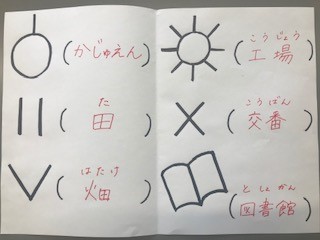 (かじゅえん)
た
(田)
はたけ
(畑)
こうじょう
(工場)
こうばん
(交番)
としょかん
(図書館)